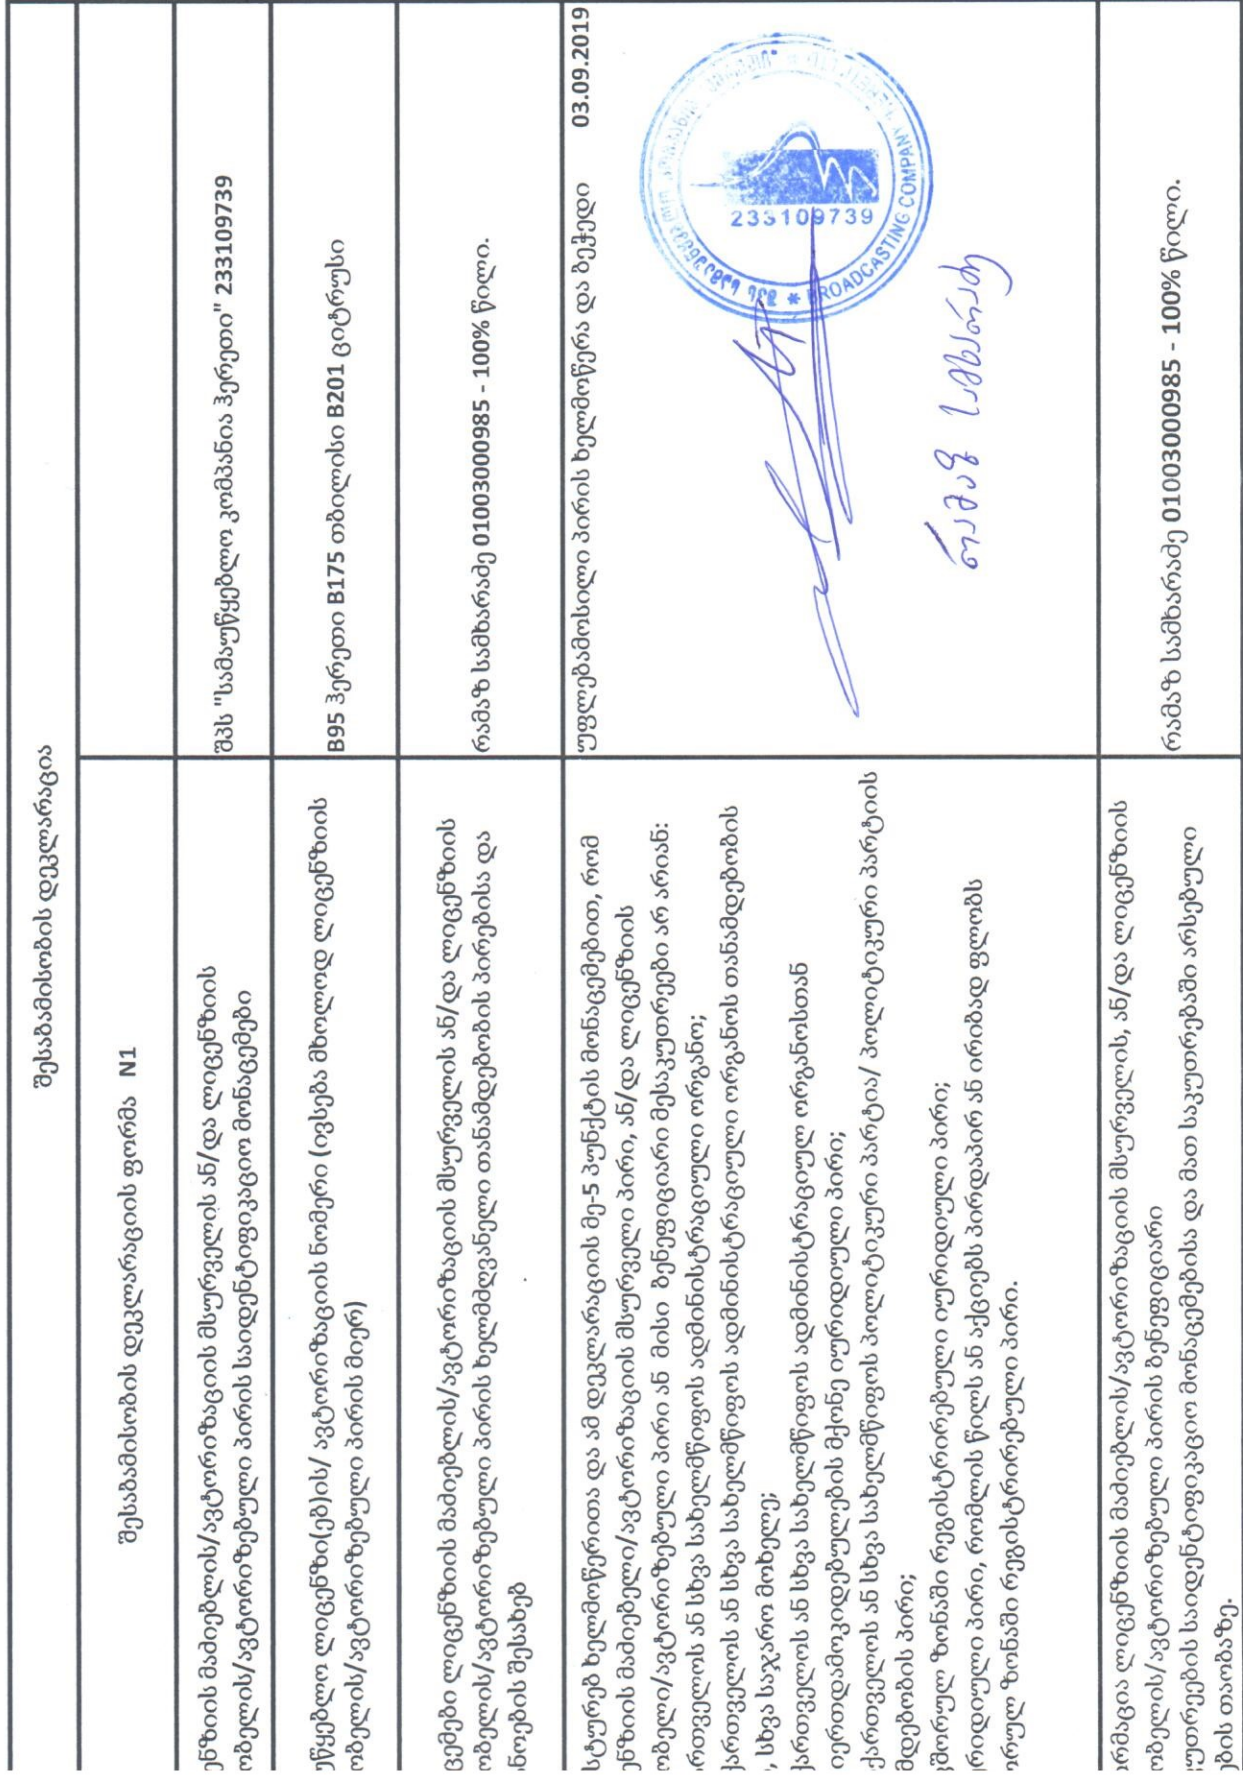 შესაბამისობის დეკლარაცია
შესაბამისობის დეკლარაციის ფორმა N1
ენზიის მაძიებლის/ავტორიზაციის მსურველის ან/და ლიცენზიის
ობელის/ავტორიზებული პირის საიდენტიფიკაციო მონაცემები
შპს "სამაუწყებლო კომპანია ჰერეთი" 233109739
უწყებლო ლიცენზი(ებ)ის/ ავტორიზაციის ნომერი (ივსება მხოლოდ ლიცენზიის
ობელის/ავტორიზებული პირის მიერ)
B95 ჰერეთი B175 თბილისი B201 ციტრუსი
ცემები ლიცენზიის მაძიებლის/ავტორიზაციის მსურველის ან/და ლიცენზიის
ობელის/ავტორიზებული პირის ხელმძღვანელი თანამდებობის პირებისა და
ანოების შესახებ
რამაზ სამხარაძე 01003000985 - 100% წილი.
სტურებ ხელმოწერითა და ამ დეკლარაციის მე-5 პუნქტის მონაცემებით, რომ
ენზიის მაძიებელი/ავტორიზაციის მსურველი პირი, ან/და ლიცენზიის
ობელი/ავტორიზებული პირი ან მისი ბენეფიციარი მესაკუთრეები არ არიან:
რთველოს ან სხვა სახელმწიფოს ადმინისტრაციული ორგანო;
ართველოს ან სხვა სახელმწიფოს ადმინისტრაციული ორგანოს თანამდებობის
, სხვა საჯარო მოხელე;
ართველოს ან სხვა სახელმწიფოს ადმინისტრაციულ ორგანოსთან
იერთდამოკიდებულების მქონე იურიდიული პირი;
ქართველოს ან სხვა სახელმწიფოს პოლიტიკური პარტია/ პოლიტიკური პარტიის
მდებობის პირი;
შორულ ზონაში რეგისტრირებული იურიდიული პირი;
რიდიული პირი, რომლის წილს ან აქციებს პირდაპირ ან ირიბად ფლობს
ორულ ზონაში რეგისტრირებული პირი.
უფლებამოსილი პირის ხელმოწერა და ბეჭედი 03.09.2019
233109739
BROADCASTING COMPANY
რამაზ სამხარაძე
რმაცია ლიცენზიის მაძიებლის/ავტორიზაციის მსურველის, ან/და ლიცენზიის
ობელის/ავტორიზებული პირის ბენეფიციარი
კუთრეების საიდენტიფიკაციო მონაცემებისა და მათ საკუთრებაში არსებული
ების თაობაზე.
რამაზ სამხარაძე 01003000985 - 100% წილი.